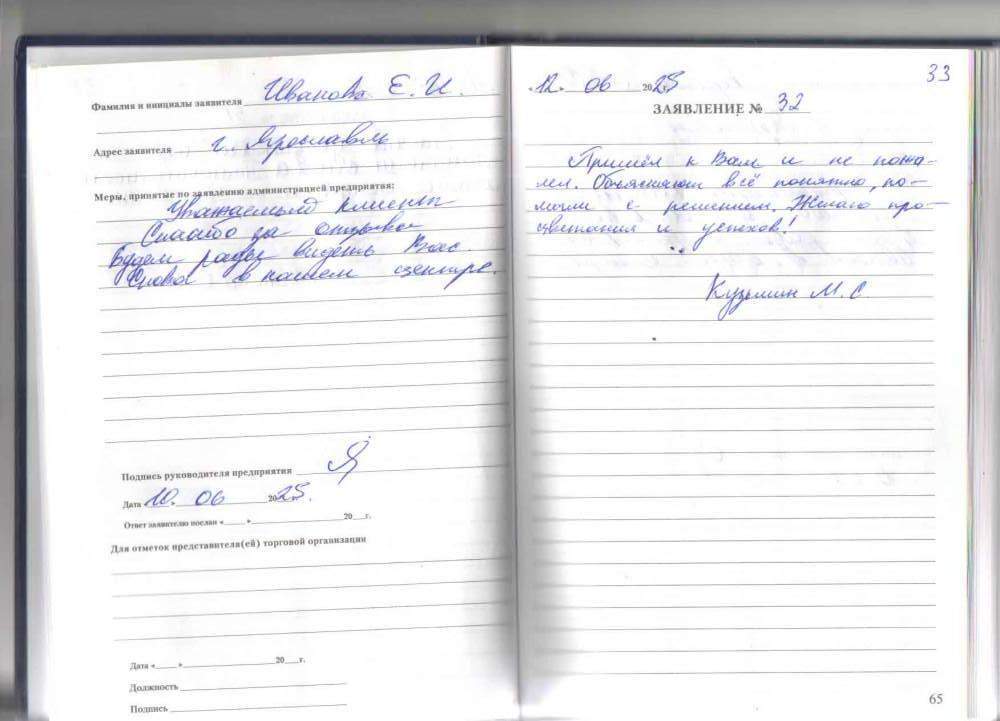 Фамилия и инициалы заявителя Иванова Е. И.
Адрес заявителя г. Ярославль
Меры, принятые по заявлению администрацией предприятия:
Уважаемый клиент
Спасибо за отзыв
Будем рады видеть Вас
Снова в нашем центре.
Подпись руководителя предприятия
Дата «10» 06 2025.
Ответ заявителю послан «___» ___ 20__г.
Для отметок представителя(ей) торговой организации
Дата «___» ___ 20__г.
Должность
Подпись
33
«12» 06 2025
ЗАЯВЛЕНИЕ № 32
Пришёл к Вам и не пожа-
лел. Объяснили всё понятно, по-
могли с решением. Желаю про-
цветания и успехов!
Кузьмин М. С.
65